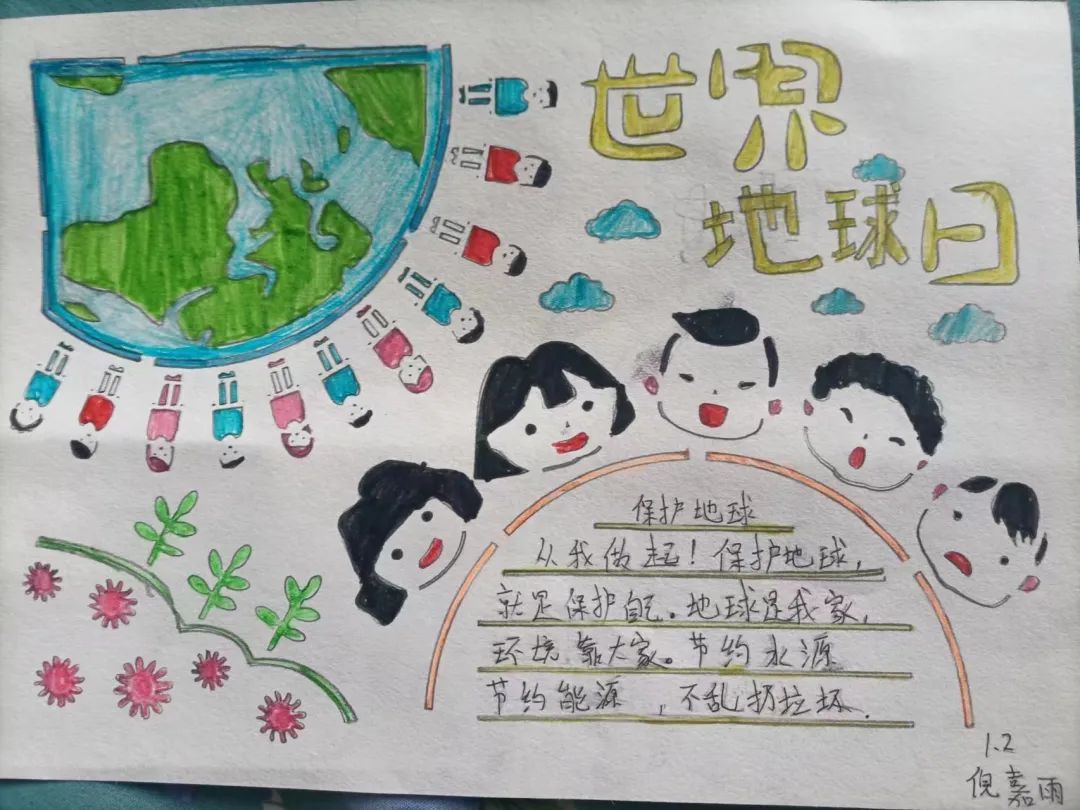 世界
地球日
保护地球
从我做起！保护地球，
就是保护自己。地球是我家，
环境靠大家。节约水源
节约能源，不乱扔垃圾.
1.2
倪嘉雨